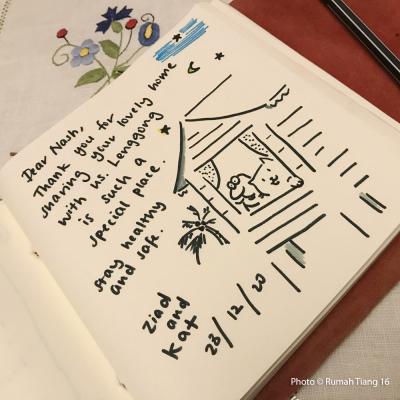 Dear Nash,
Thank you for
sharing your lovely home
with us. Lenggong
is such a
special place.
Stay healthy
and safe.
Ziad
and
Kat
28/12/20
Photo © Rumah Tiang 16